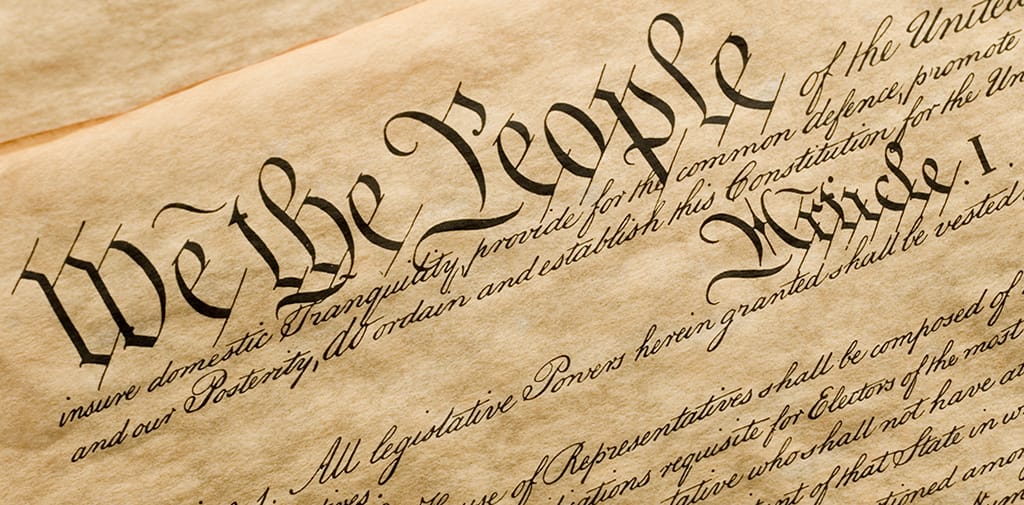 We the People of the United
insure domestic Tranquility, provide for the common defence, promote
and our Posterity, do ordain and establish this Constitution for the Un
Article. I.
All legislative Powers herein granted shall be vested
of Representatives shall be composed of
requisite for Electors of the most
who shall not have
of that State in